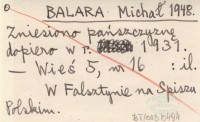 BALARA Michał 1948.
Zniesiono pańszczyznę
dopiero w r. 1931.
— Wieś 5, nr 16 : il.
W Falsztynie na Spiszu
Polskim.